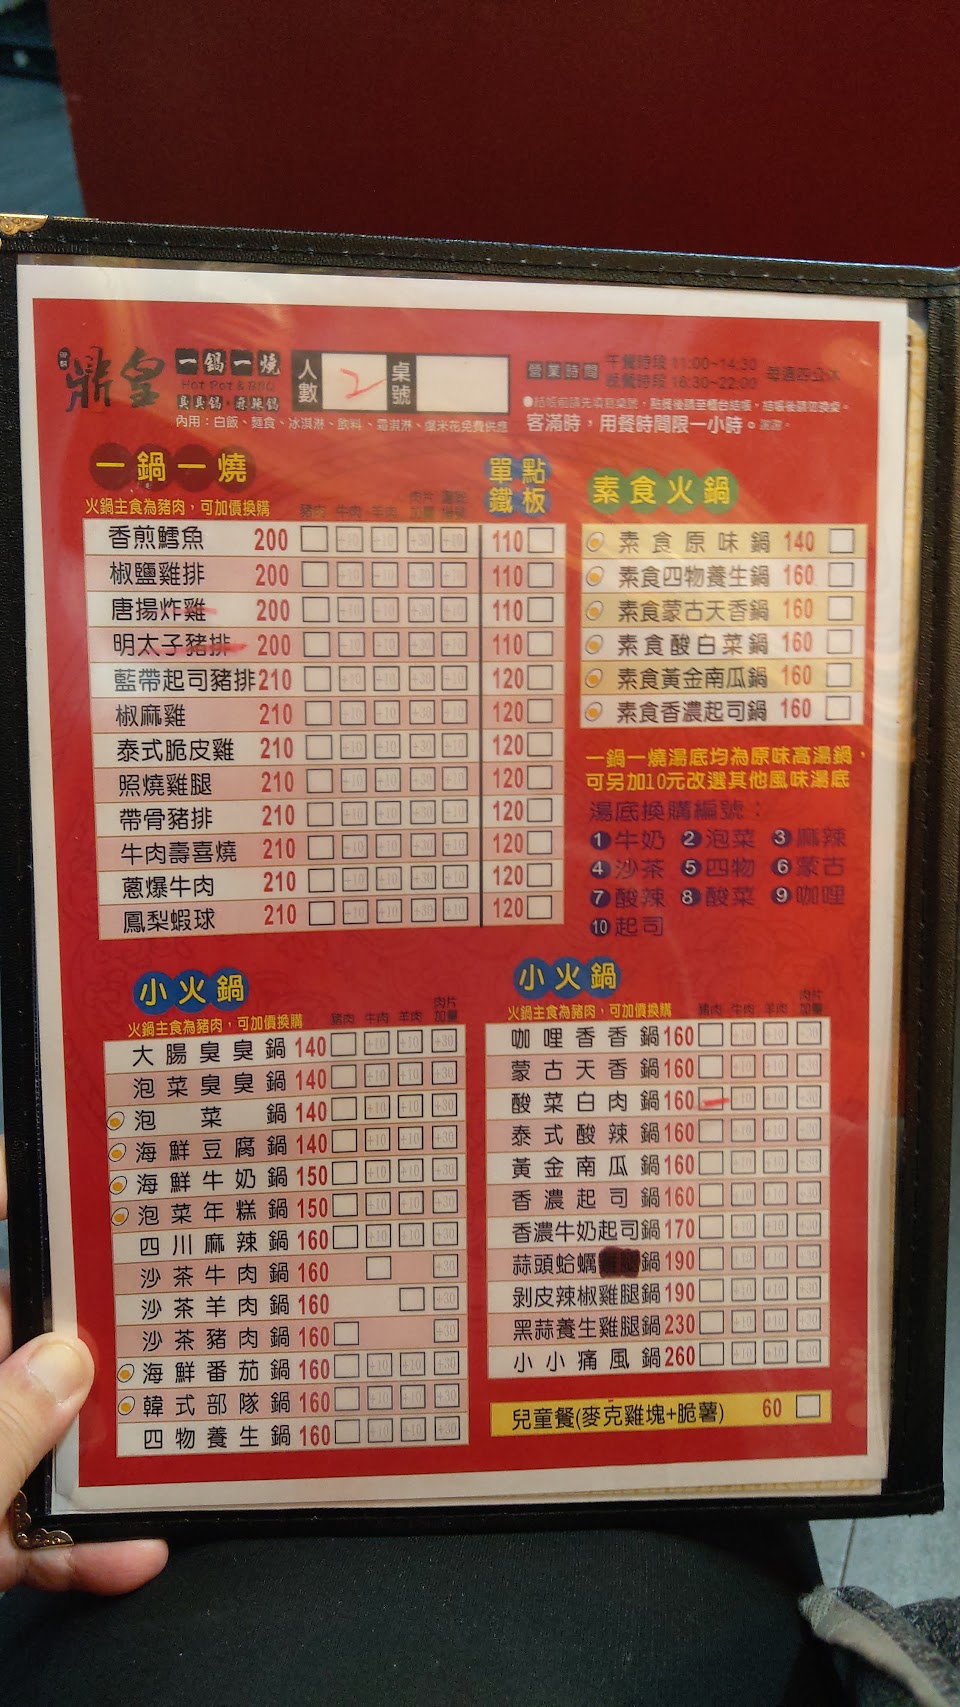 鼎皇
一鍋一燒
Hot Pot & BBQ
臭臭鍋·麻辣鍋
人數 2 桌號
營業時間 午餐時段 11:00~14:30 每週四公休
晚餐時段 16:30~22:00
客滿時，用餐時間限一小時。謝謝。
內用：白飯、麵食、冰淇淋、飲料、霜淇淋、爆米花免費供應
一鍋一燒
火鍋主食為豬肉，可加價換購
豬肉 牛肉 羊肉 肉片加量
單點鐵板
香煎鱈魚 200 +10 +10 +30 +10 110
椒鹽雞排 200 +10 +10 +30 +10 110
唐揚炸雞 200 +10 +10 +30 +10 110
明太子豬排 200 +10 +10 +30 +10 110
藍帶起司豬排 210 +10 +10 +30 +10 120
椒麻雞 210 +10 +10 +30 +10 120
泰式脆皮雞 210 +10 +10 +30 +10 120
照燒雞腿 210 +10 +10 +30 +10 120
帶骨豬排 210 +10 +10 +30 +10 120
牛肉壽喜燒 210 +10 +10 +30 +10 120
蔥爆牛肉 210 +10 +10 +30 +10 120
鳳梨蝦球 210 +10 +10 +30 +10 120
素食火鍋
素食原味鍋 140
素食四物養生鍋 160
素食蒙古天香鍋 160
素食酸白菜鍋 160
素食黃金南瓜鍋 160
素食香濃起司鍋 160
一鍋一燒湯底均為原味高湯鍋，
可另加10元改選其他風味湯底
湯底換購編號：
1 牛奶 2 泡菜 3 麻辣
4 沙茶 5 四物 6 蒙古
7 酸辣 8 酸菜 9 咖哩
10 起司
小火鍋
火鍋主食為豬肉，可加價換購
豬肉 牛肉 羊肉 肉片加量
大腸臭臭鍋 140 +10 +10 +30
泡菜臭臭鍋 140 +10 +10 +30
泡菜鍋 140 +10 +10 +30
海鮮豆腐鍋 140 +10 +10 +30
海鮮牛奶鍋 150 +10 +10 +30
泡菜年糕鍋 150 +10 +10 +30
四川麻辣鍋 160 +10 +10 +30
沙茶牛肉鍋 160 +30
沙茶羊肉鍋 160 +30
沙茶豬肉鍋 160 +30
海鮮番茄鍋 160 +10 +10 +30
韓式部隊鍋 160 +10 +10 +30
四物養生鍋 160 +10 +10 +30
小火鍋
火鍋主食為豬肉，可加價換購
豬肉 牛肉 羊肉 肉片加量
咖哩香香鍋 160 +10 +10 +30
蒙古天香鍋 160 +10 +10 +30
酸菜白肉鍋 160 +10 +10 +30
泰式酸辣鍋 160 +10 +10 +30
黃金南瓜鍋 160 +10 +10 +30
香濃起司鍋 160 +10 +10 +30
香濃牛奶起司鍋 170 +10 +10 +30
蒜頭蛤蠣鍋 190 +10 +10 +30
剝皮辣椒雞腿鍋 190 +10 +10 +30
黑蒜養生雞腿鍋 230 +10 +10 +30
小小痛風鍋 260 +10 +10 +30
兒童餐(麥克雞塊+脆薯) 60